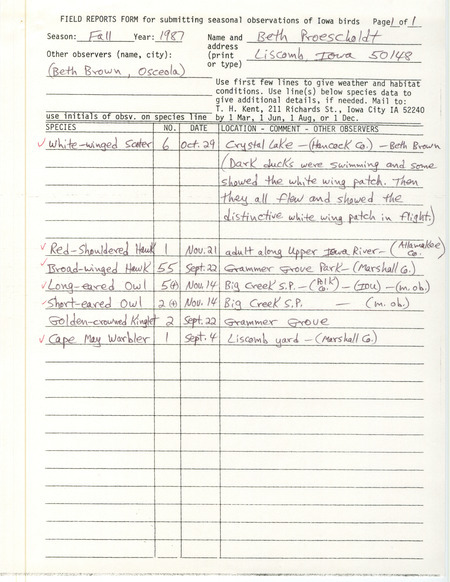 FIELD REPORTS FORM for submitting seasonal observations of Iowa birds Page 1 of 1
Season: Fall Year: 1987 Name and address (print or type) Beth Proescholdt
Liscomb Iowa 50148
Other observers (name, city):
(Beth Brown, Osceola)
Use first few lines to give weather and habitat
conditions. Use line(s) below species data to
give additional details, if needed. Mail to:
T. H. Kent, 211 Richards St., Iowa City IA 52240
use initials of obsv. on species line by 1 Mar, 1 Jun, 1 Aug, or 1 Dec.
SPECIES NO. DATE LOCATION - COMMENT - OTHER OBSERVERS
White-winged Scoter 6 Oct. 29 Crystal Lake - (Hancock Co.) - Beth Brown
(Dark ducks were swimming and some
showed the white wing patch. Then
they all flew and showed the
distinctive white wing patch in flight.)
Red-Shouldered Hawk 1 Nov. 21 adult along Upper Iowa River - (Allamakee Co.)
Broad-winged Hawk 55 Sept. 22 Grammer Grove Park - (Marshall Co.)
Long-eared Owl 5(+) Nov. 14 Big Creek S.P. - (Polk Co.) - (IOU) - (m. ob.)
Short-eared Owl 2(+) Nov. 14 Big Creek S.P. - (m. ob.)
Golden-crowned Kinglet 2 Sept. 22 Grammer Grove
Cape May Warbler 1 Sept. 4 Liscomb yard - (Marshall Co.)